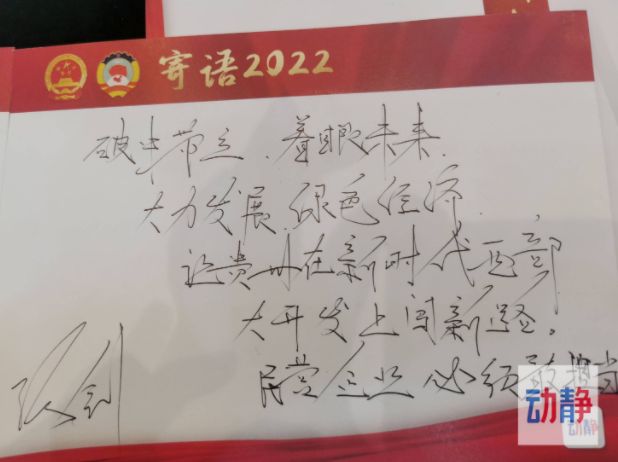 寄语2022
着眼未来
大力发展.绿色经济.
让贵州在新时代西部
大开发上闯新路。
民营企业必须敢担当
动静
动静